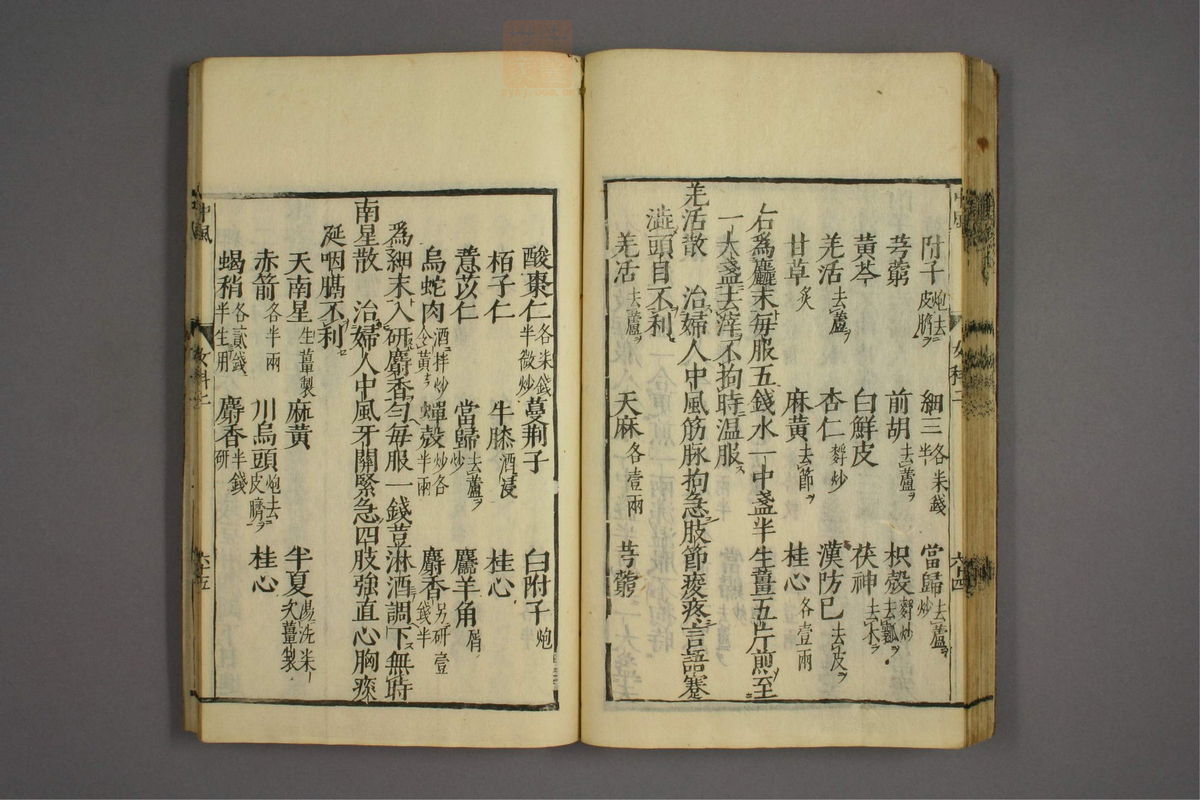 附子炮去皮臍 細辛各半錢 當歸去蘆炒
芎藭 前胡去蘆 枳殻麸炒去瓤
黄芩 白鮮皮 茯神去木
羌活去蘆 杏仁麸炒 漢防已去皮
甘草炙 麻黄去節 桂心各壹兩
右爲麤末每服五錢水一中盞半生薑五片煎至
一大盞去滓不拘時温服
羌活散 治婦人中風筋脉拘急肢節痠疼言語蹇
澁頭目不利
羌活去蘆 天麻各壹兩 芎藭
酸棗仁各半微炒 蔓荆子 白附子炮
栢子仁 牛膝酒浸 桂心
薏苡仁 當歸去蘆炒 麢羊角屑
烏蛇肉酒拌炒令黄 蟬殻炒各半兩 麝香另研壹錢半
爲細末入研麝香匀每服一錢荳淋酒調下無時
南星散 治婦人中風牙關緊急四肢強直心胸痰
延咽膈不利
天南星生薑製 麻黄 半夏湯洗薑製
赤箭各半兩 川烏頭炮去皮臍 桂心
蝎稍各貳錢半生用 麝香半錢研